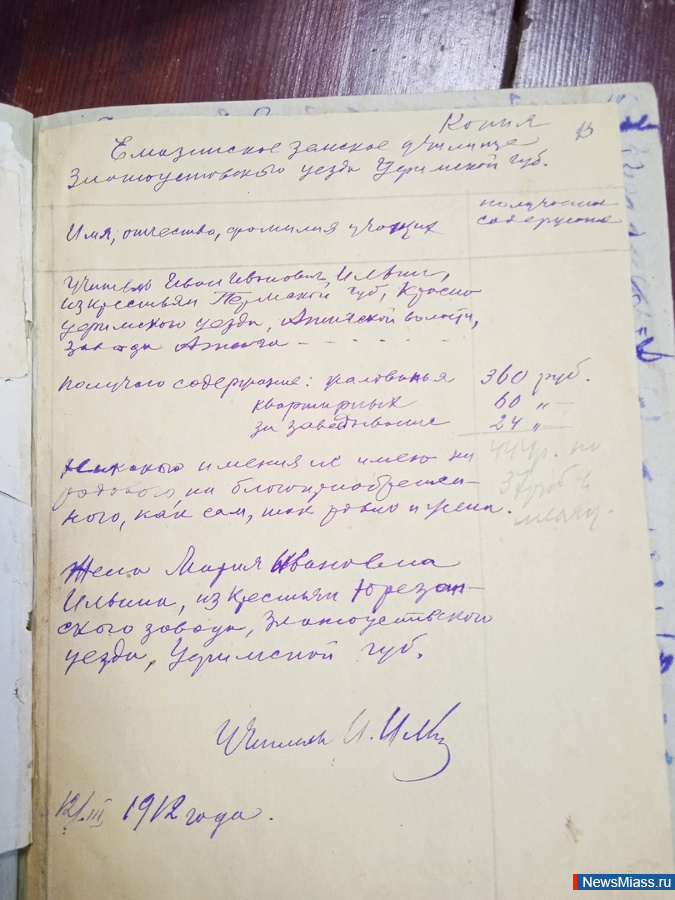 Копия 13
Емазинское земское училище
Златоустовского уезда Уфимской губ.
получаемое
Имя, отчество, фамилия учащих содержание
Учитель Иван Иванович Ильин,
из крестьян Пермской губ, Красно
уфимского уезда, Ачитской волости,
завода
получаю содержание: жалованья 360 руб.
квартирных 60 " —
за заведывание 24 " —
Никакого имения не имею ни 444 р. по
родового, ни благоприобретен- 37 руб в
ного, как сам, так равно и жена. месяц.
Жена Мария Ивановна
Ильина, из крестьян Юрезан-
ского завода, Златоустовского
уезда, Уфимской губ.
Учитель И. Ильин
12/III 1912 года.
NewsMiass.ru